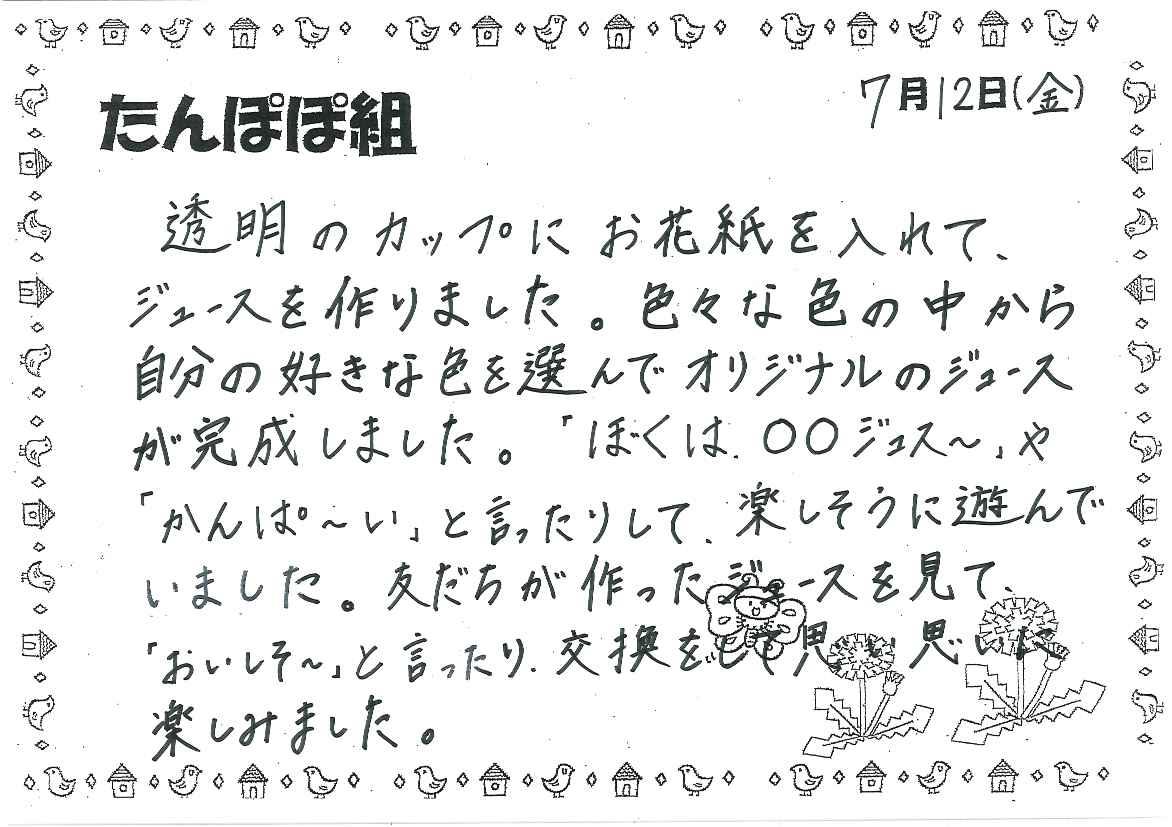 たんぽぽ組
7月12日(金)
透明のカップにお花紙を入れて、
ジュースを作りました。色々な色の中から
自分の好きな色を選んでオリジナルのジュース
が完成しました。「ぼくは、〇〇ジュス～」や
「かんぱ～い」と言ったりして、楽しそうに遊んで
いました。友だちが作ったジュースを見て、
「おいしそ～」と言ったり、交換をして思い思いに
楽しみました。